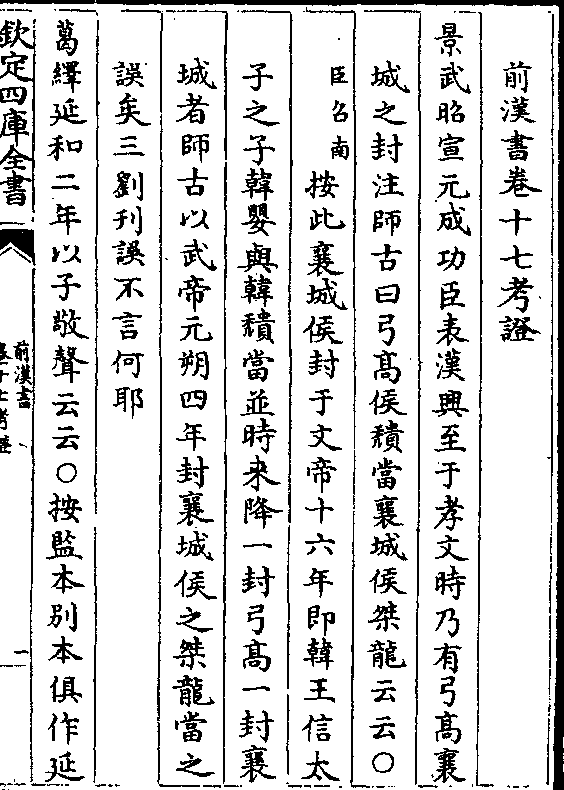 前漢書卷十七考證
景武昭宣元成功臣表漢興至于孝文時乃有弓髙襄
城之封注師古曰弓髙侯穨當襄城侯桀龍云云○
臣召南按此襄城侯封于文帝十六年即韓王信太
子之子韓嬰與韓穨當並時来降一封弓髙一封襄
城者師古以武帝元朔四年封襄城侯之桀龍當之
誤矣三劉刊誤不言何耶
葛繹延和二年以子敬聲云云○按監本别本俱作延
欽定四庫全書
前漢書
卷十七考證
一